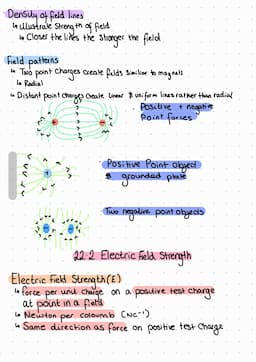 Density of field lines
↳ Illustrate Strength of field
↳ Closer the lines the stronger the field
Field patterns
↳ Two point charges create fields similar to magnets
↳ Radial
↳ Distant point charges create linear & uniform lines rather than radial
Positive + negative
Point forces
+
-
Positive Point object
& grounded plate
+
Two negative point objects
-
-
22.2 Electric Field Strength
Electric Field Strength (E)
↳ Force per unit charge on a positive test charge
at point in a field
↳ Newton per coloumb (NC⁻¹)
↳ Same direction as force on positive test charge